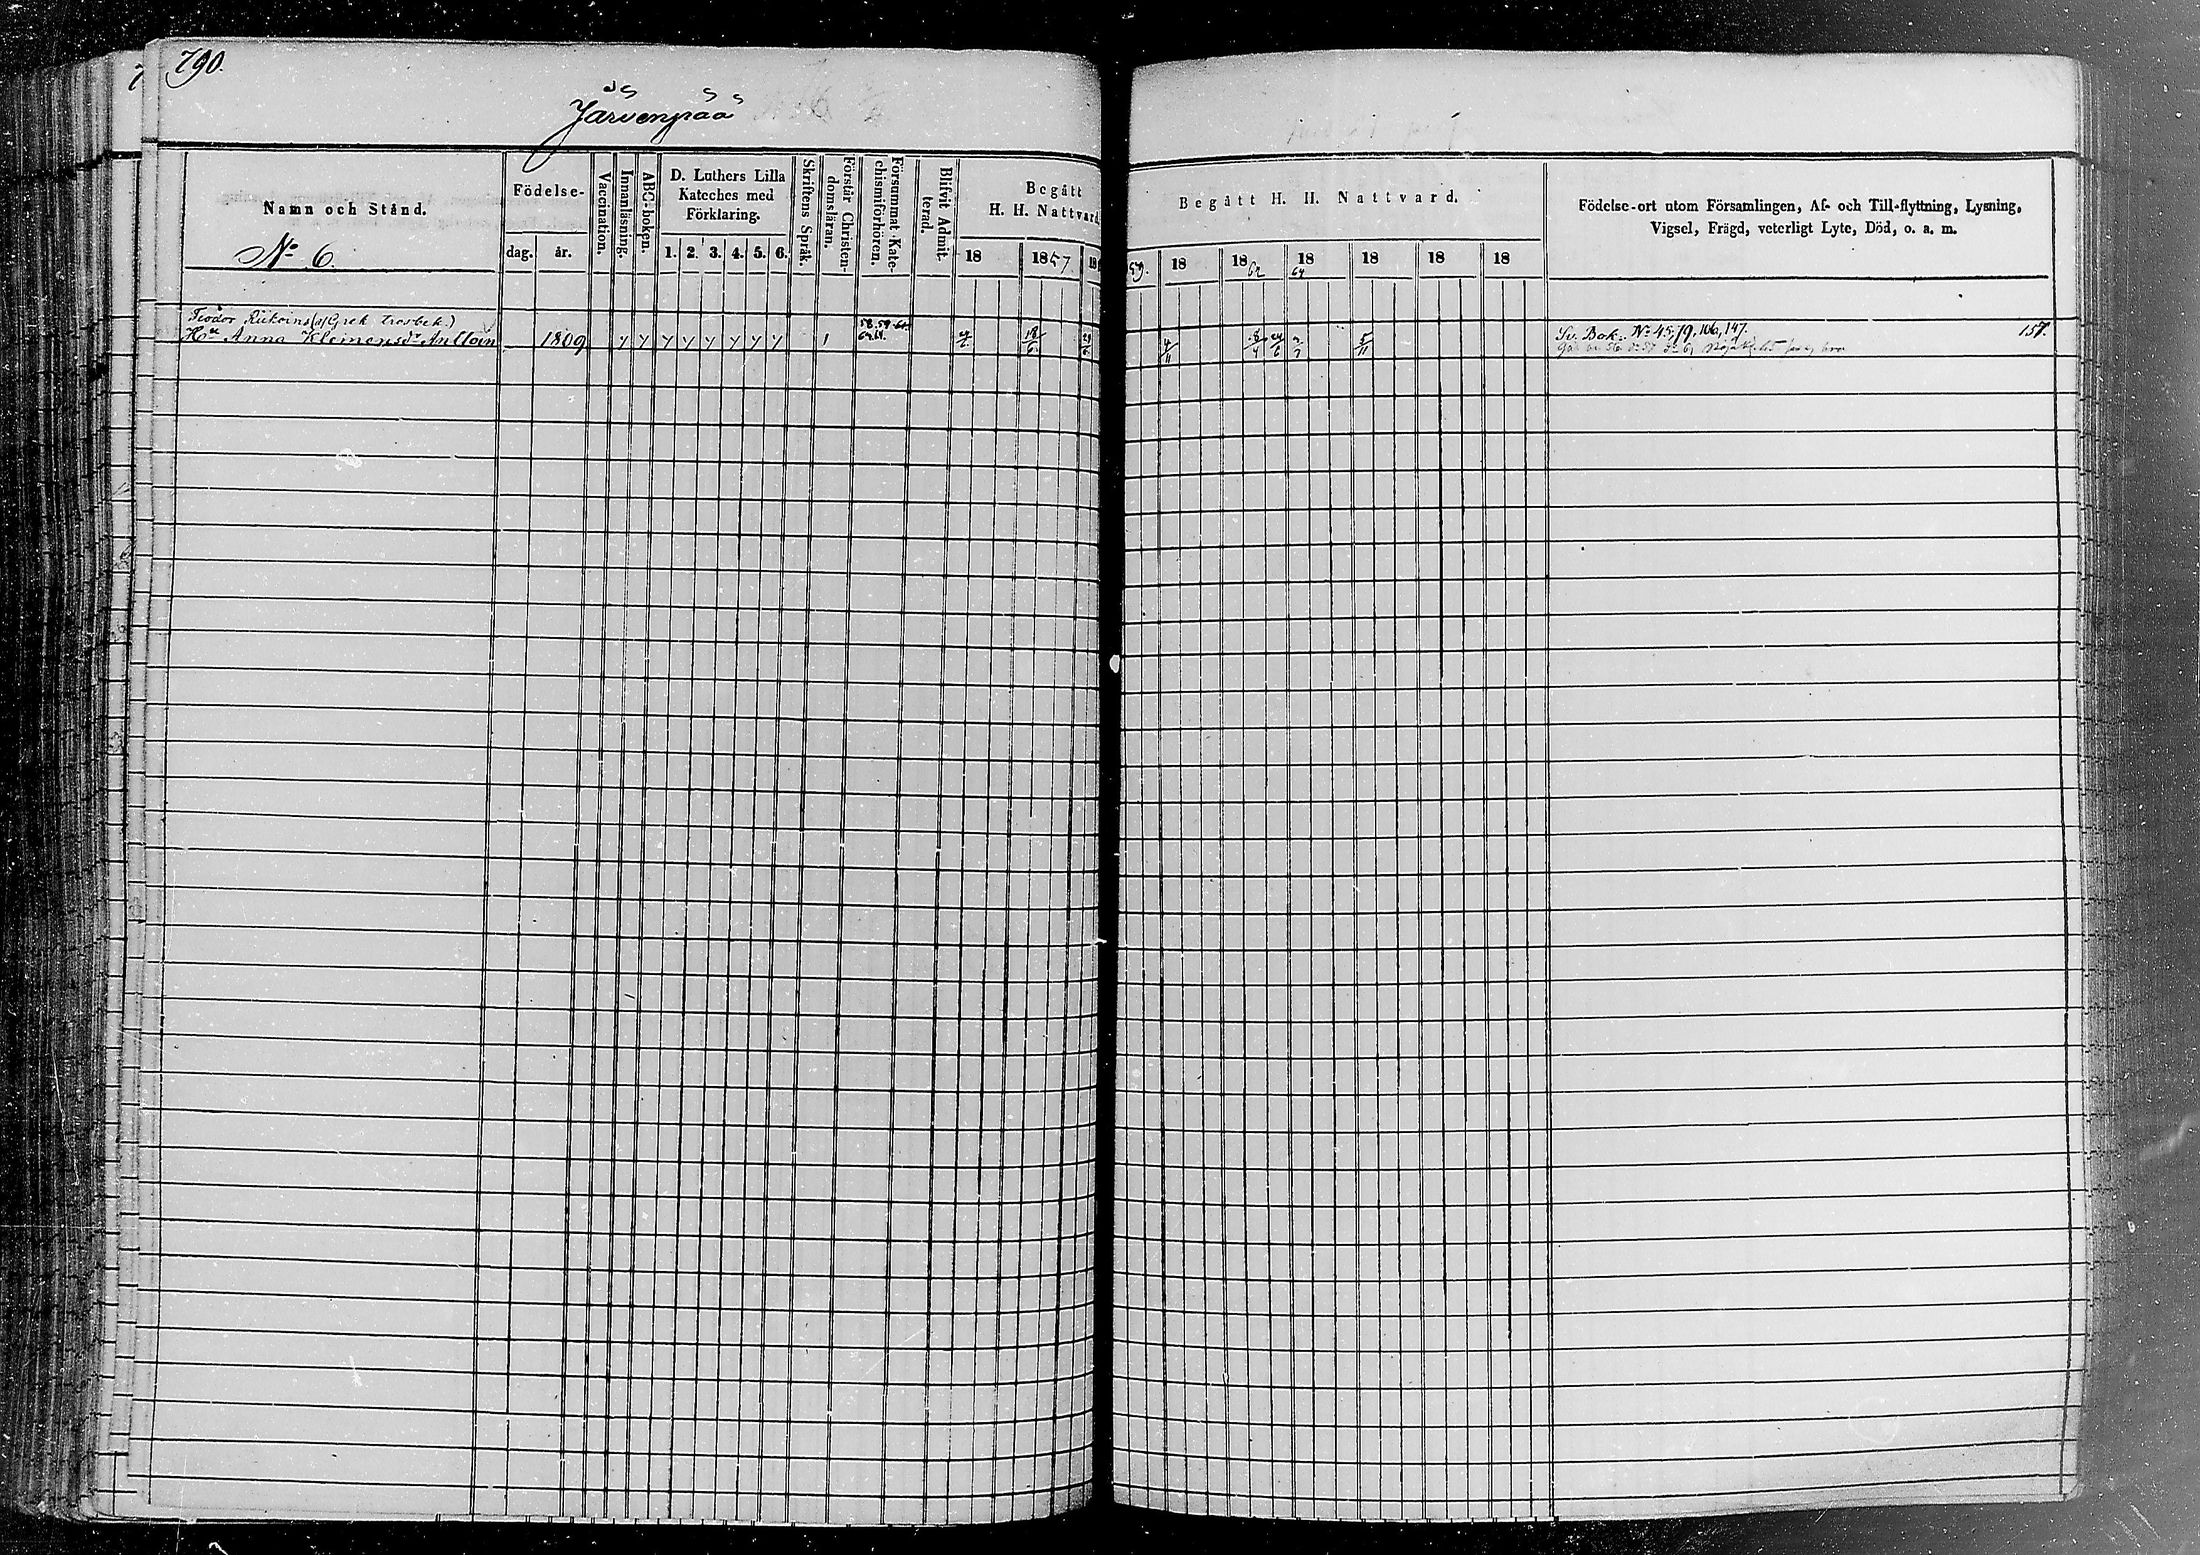 790.
Järvenpää
Namn och Stånd.
No 6.
Födelse-
dag.
år.
Vaccination.
Innanläsning.
ABC-boken.
D. Luthers Lilla
Kateches med
Förklaring.
1. 2. 3. 4. 5. 6.
Skriftens Språk.
Förstår Christen-
domsläran.
Försummat Kate-
chismiförhören.
Blifvit Admit-
terad.
Begått
H. H. Nattvard.
18
1857
Teodor (Grek. trosbek.)
Hu Anna Klemensdr Anttoin 1809 y y y y y y y y 1
Begått H. H. Nattvard.
59. 18 1862 1864 18 18 18
Födelse-ort utom Församlingen, Af- och Till-flyttning, Lysning,
Vigsel, Frägd, veterligt Lyte, Död, o. a. m.
Sv. Bok. No 45, 79, 106, 147. 157.